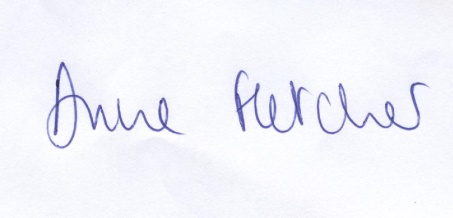 Anne Fletcher